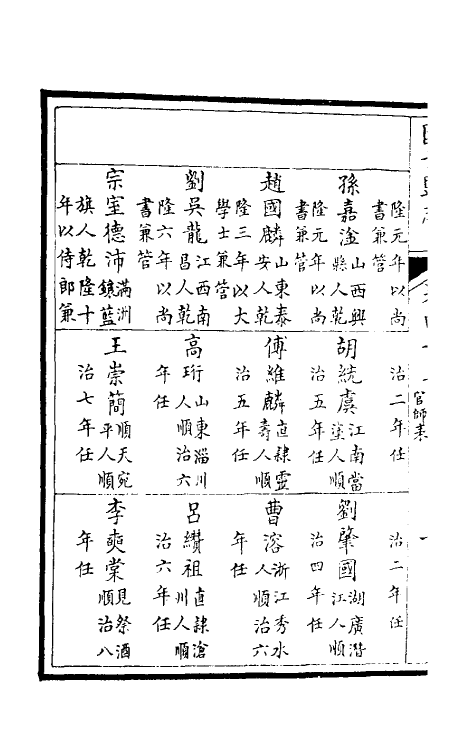 官師表
一
隆元年以尚
書兼管
孫嘉淦
山西興
縣人乾
隆元年以尚
書兼管
趙國麟
山東泰
安人乾
隆三年以大
學士兼管
劉吳龍
江西南
昌人乾
隆六年以尚
書兼管
宗室德沛
滿洲
鑲藍
旗人乾隆十
年以侍郎兼
治二年任
胡統虞
江南當
塗人順
治五年任
傅維麟
直隸靈
壽人順
治五年任
高珩
山東淄川
人順治六
年任
王崇簡
順天宛
平人順
治七年任
治二年任
劉肇國
湖廣潛
江人順
治四年任
曹溶
浙江秀水
人順治六
年任
呂纘祖
直隸滄
州人順
治六年任
李奭棠
見祭酒
順治八
年任